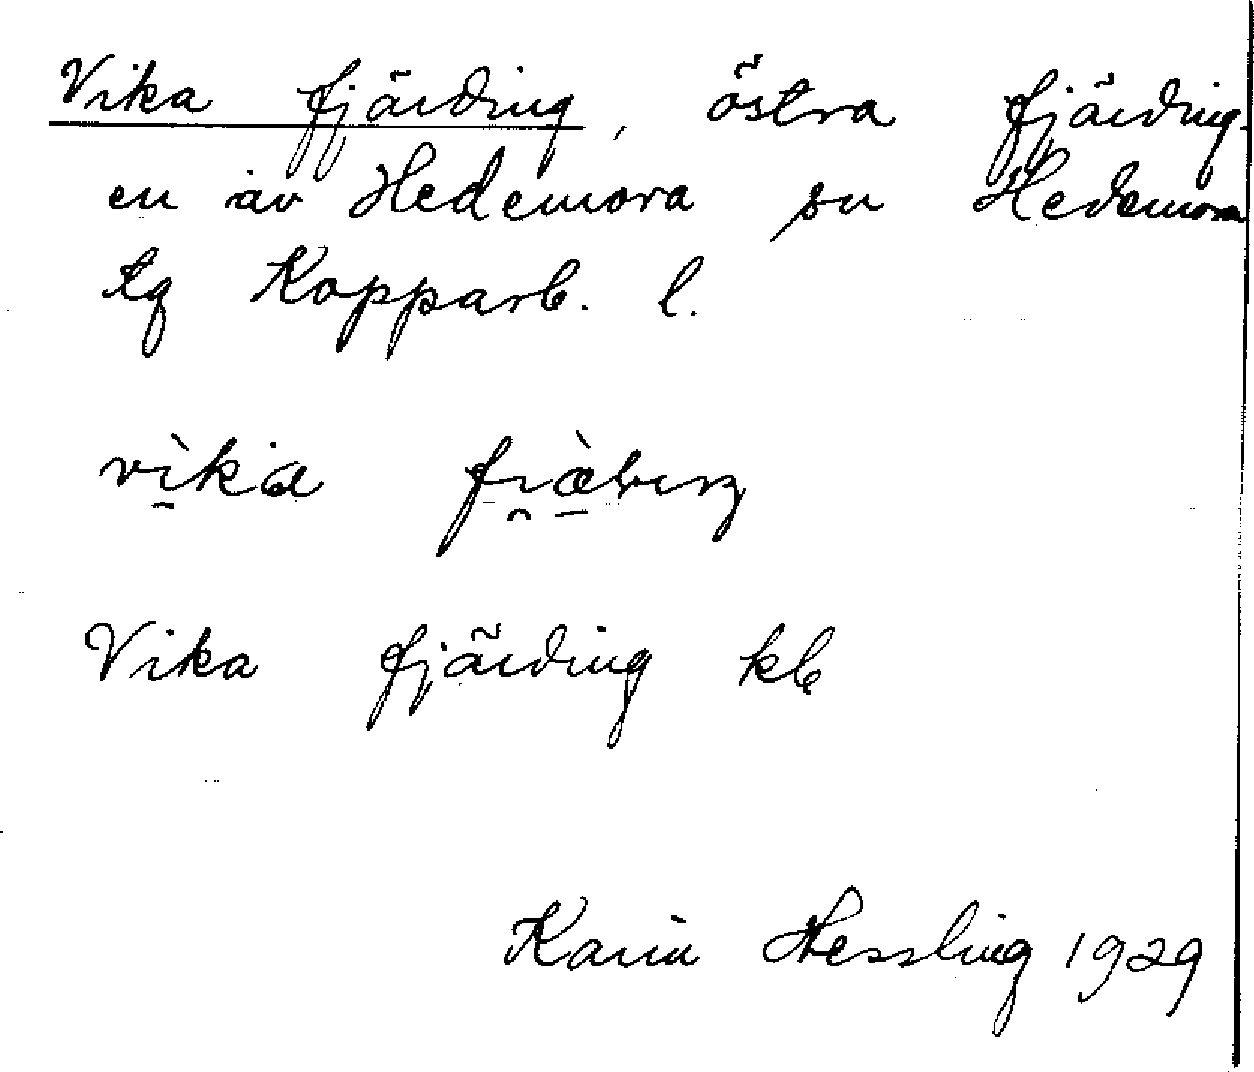 Vika fjärding, östra fjärding-
en av Hedemora sn Hedemora
tg Kopparb. l.
Vika fjärding kb
Karin Hessling 1929